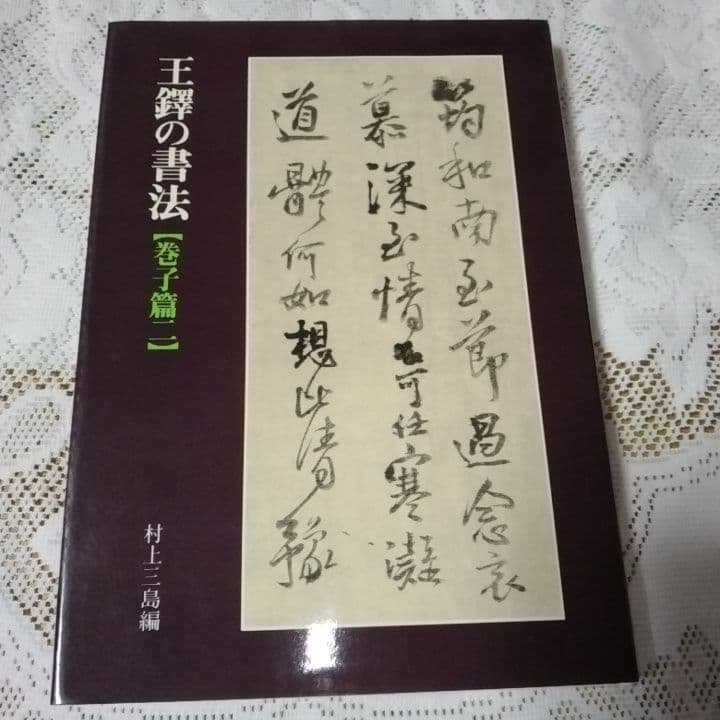 王鐸の書法
【巻子篇二】
村上三島編
筠和南至節過念哀
慕深至情不可任寒凝
道體何如想比清豫